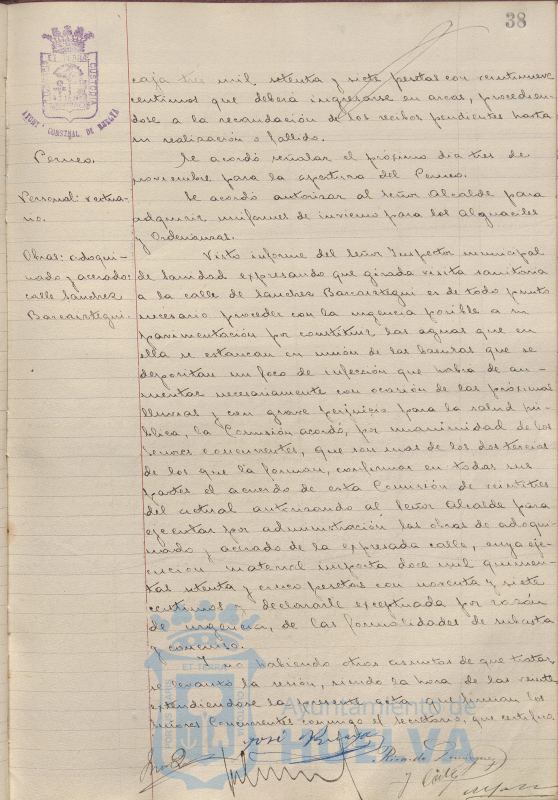 38
PORTUS MARIS ET TERRÆ CUSTODIA
AYUNT. CONSTNAL. DE HUELVA
caja tres mil setenta y siete pesetas con veintinueve
centimos que deberá ingresarse en arcas, procedien-
dose a la recaudación de los recibos pendientes hasta
su realización o fallido.
Censo.
Se acordó señalar el próximo dia tres de
noviembre para la apertura del Censo.
Personal: vestua-
rio.
Se acordó autorizar al Señor Alcalde para
adquirir uniformes de invierno para los Alguaciles
y Ordenanzas.
Obras: adoqui-
nado y acerado:
calle Sanchez
Barcaiztegui.
Visto informe del Señor Inspector municipal
de Sanidad expresando que girada visita sanitaria
a la calle de Sanchez Barcaiztegui es de todo punto
necesario proceder con la urgencia posible a su
pavimentación por constituir las aguas que en
ella se estancan en unión de las basuras que se
depositan un foco de infección que habria de au-
mentar necesariamente con ocasión de las próximas
lluvias y con grave perjuicio para la salud pú-
blica, la Comisión acordó, por unanimidad de los
Señores concurrentes, que son mas de los dos tercios
de los que la forman, confirmar en todas sus
partes el acuerdo de esta Comisión de
del actual autorizando al Señor Alcalde para
ejecutar por administración las obras de adoqui-
nado y acerado de la expresada calle, cuya eje-
cución material importa doce mil quinien-
tas setenta y cinco pesetas con noventa y siete
centimos y declararle exceptuada por razón
de urgencia, de las formalidades de subasta
y concurso.
Y no habiendo otros asuntos de que tratar
se levantó la sesión, siendo la hora de las veinte
extendiendose la presente acta que firman los
Señores Concurrentes conmigo el Secretario, que certifico.
José
Ricardo
y
Ayuntamiento de
HUELVA